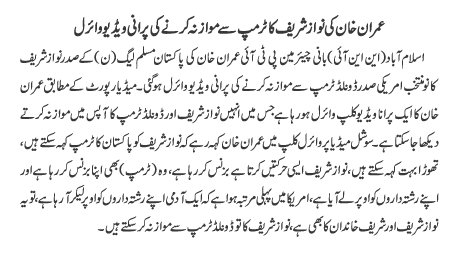 عمران خان کی نواز شریف کا ٹرمپ سے موازنہ کرنے کی پرانی ویڈیو وائرل
اسلام آباد (این این آئی) بانی چیئرمین پی ٹی آئی عمران خان کی پاکستان مسلم لیگ (ن) کے صدر نواز شریف
کا نومنتخب امریکی صدر ڈونلڈ ٹرمپ سے موازنہ کرنے کی پرانی ویڈیو وائرل ہوگئی۔ میڈیا رپورٹ کے مطابق عمران
خان کا ایک پرانا ویڈیو کلپ وائرل ہورہا ہے جس میں انہیں نواز شریف اور ڈونلڈ ٹرمپ کا آپس میں موازنہ کرتے
دیکھا جاسکتا ہے۔ سوشل میڈیا پر وائرل کلپ میں عمران خان کہہ رہے کہ نواز شریف کو پاکستان کا ٹرمپ کہہ سکتے ہیں،
تھوڑا بہت کہہ سکتے ہیں، نواز شریف ایسی حرکتیں کرتا ہے بزنس کر رہا ہے، وہ (ٹرمپ) بھی اپنا بزنس کر رہا ہے اور
اپنے رشتہ داروں کو اوپر لے آیا ہے، امریکا میں پہلی مرتبہ ہوا ہے کہ ایک آدمی اپنے رشتہ داروں کو اوپر لیکر آرہا ہے، تو یہ
نواز شریف اور شریف خاندان کا بھی ہے، نواز شریف کا تو ڈونلڈ ٹرمپ سے موازنہ کرسکتے ہیں۔